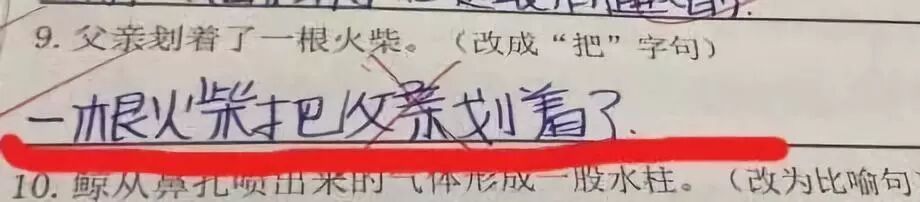 9. 父亲划着了一根火柴。（改成“把”字句）
一根火柴把父亲划着了.
10. 鲸从鼻孔喷出来的气体形成一股水柱。（改为比喻句